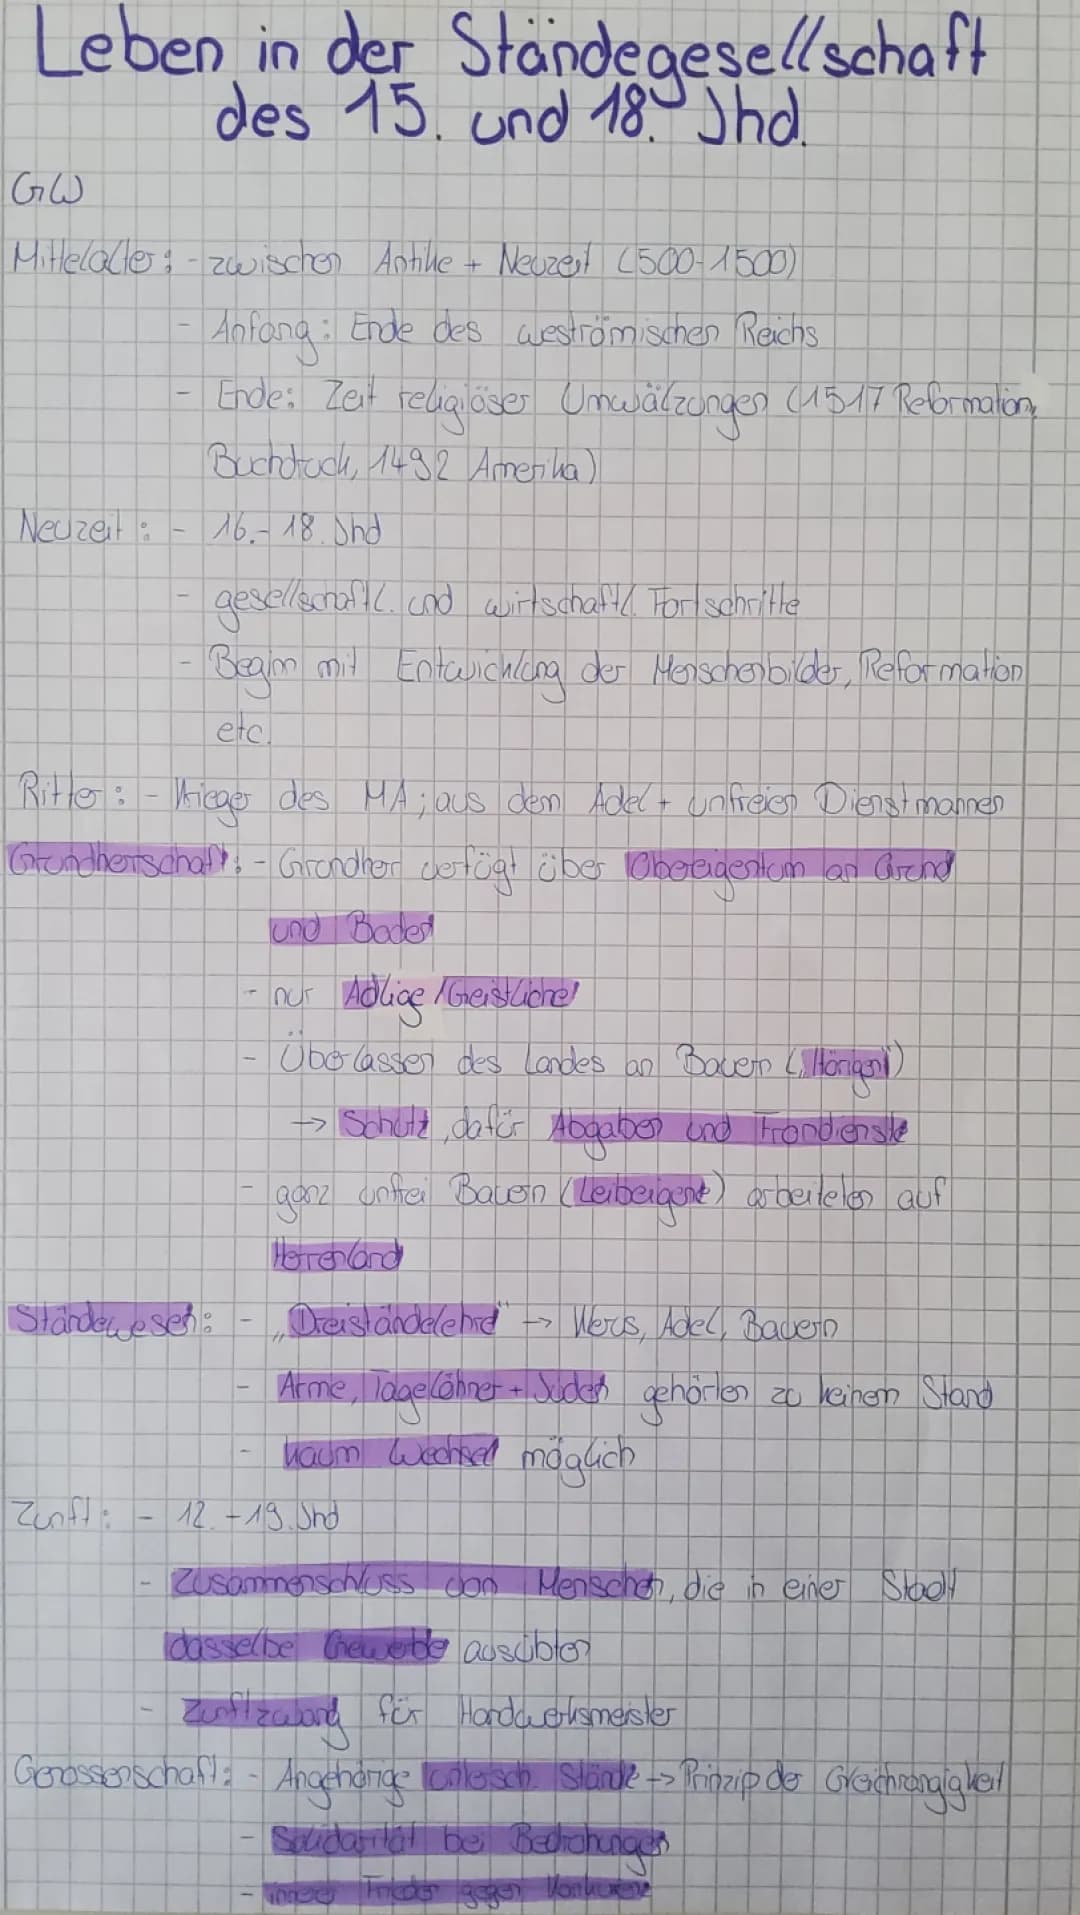 Leben in der Ständegesellschaft
des 15. und 18. Jhd.
GW
Mittelalter: - zwischen Antike + Neuzeit (500-1500)
- Anfang: Ende des weströmischen Reichs
- Ende: Zeit religiöser Umwälzungen (1517 Reformation,
Buchdruck, 1492 Amerika)
Neuzeit: - 16.- 18. Jhd
- gesellschaftl. und wirtschaftl. Fortschritte
- Beginn mit Entwicklung der Menschenbilder, Reformation
etc.
Ritter: - Krieger des MA; aus dem Adel + unfreien Dienstmannen
Grundherrschaft: - Grundherr verfügt über Obereigentum an Grund
und Boden
- nur Adlige/Geistliche
- Überlassen des Landes an Bauern („Hörigen")
→ Schutz, dafür Abgaben und Frondienste
- ganz unfrei Bauern (Leibeigene) arbeiteten auf
Herrenland
Ständewesen: - „Dreiständelehre" → Klerus, Adel, Bauern
- Arme, Tagelöhner + Juden gehörten zu keinem Stand
- kaum Wechsel möglich
Zunft: - 12. - 19. Jhd
- Zusammenschluss von Menschen, die in einer Stadt
dasselbe Gewerbe ausübten
- Zunftzwang für Handwerksmeister
Genossenschaft: - Angehörige untersch. Stände → Prinzip der Gleichrangigkeit
- Solidarität bei Bedrohungen
- innerer Frieden gegen Konkurrenz